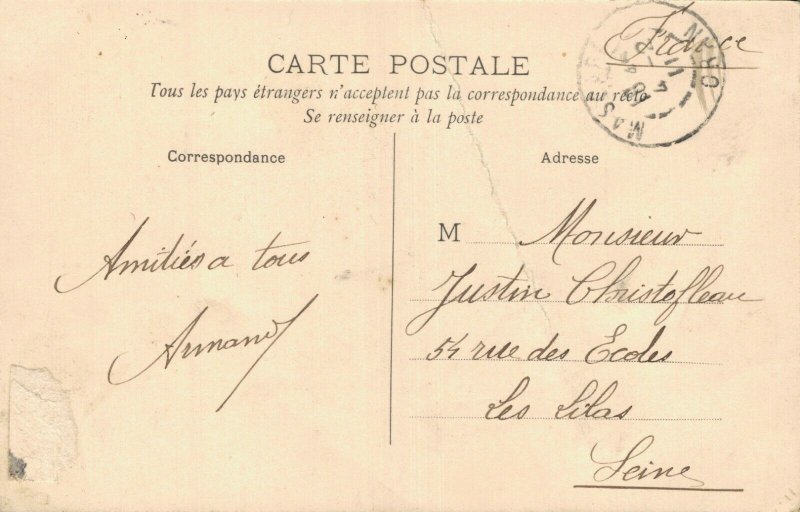 France
CARTE POSTALE
Tous les pays étrangers n'acceptent pas la correspondance au recto
Se renseigner à la poste
Correspondance
Adresse
Amitiés a tous
Armand
M Monsieur
Justin Christofleau
54 rue des Ecoles
Les Lilas
Seine